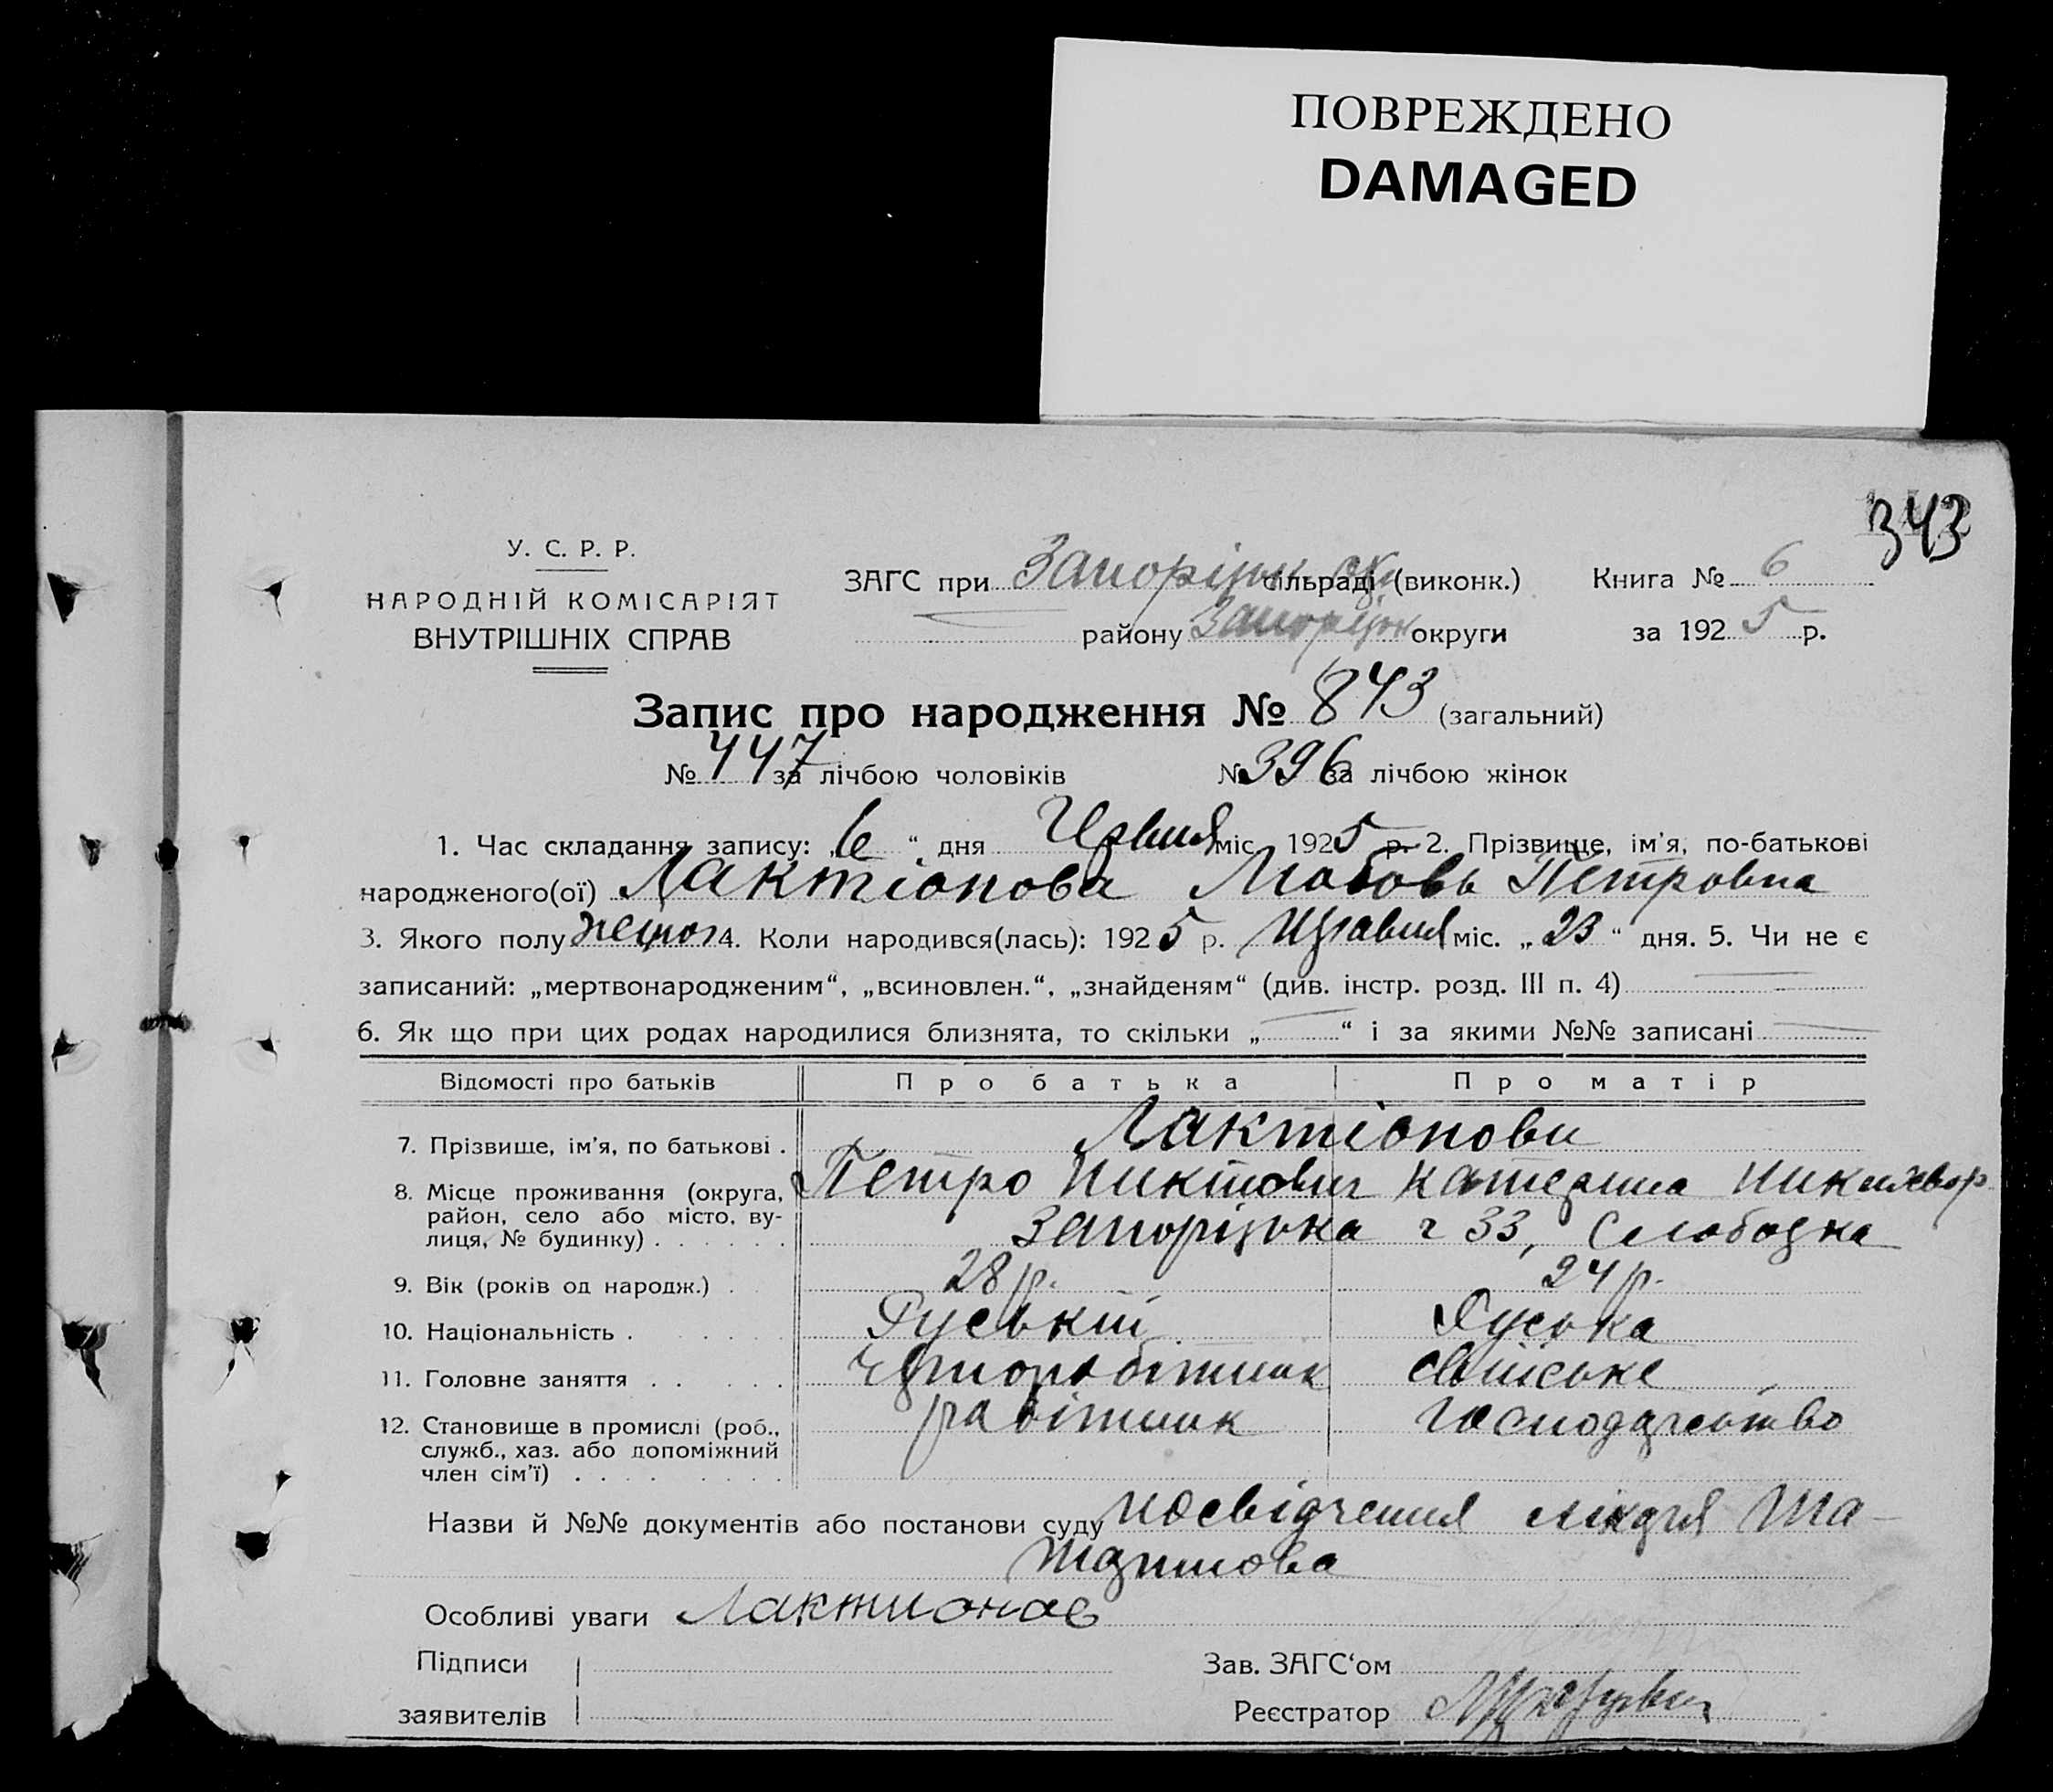 ПОВРЕЖДЕНО
DAMAGED
343
У. С. Р. Р.
НАРОДНІЙ КОМІСАРІЯТ
ВНУТРІШНІХ СПРАВ
ЗАГС при Запоріжськ сільраді (виконк.) Книга № 6
району Запоріжж округи за 1925 р.
Запис про народження № 843 (загальний)
№ 447 за лічбою чоловіків № 396 за лічбою жінок
1. Час складання запису: „6“ дня Червня міс 1925 р. 2. Прізвище, ім'я, по-батькові
народженого(ої) Лактіонова Любовь Петровна
3. Якого полу жіноч 4. Коли народився(лась): 1925 р. Травня міс. „23“ дня. 5. Чи не є
записаний: „мертвонародженим“, „всиновлен.“, „знайденям“ (див. інстр. розд. III п. 4)
6. Як що при цих родах народилися близнята, то скільки „ “ і за якими №№ записані
Відомості про батьків Про батька Про матір
7. Прізвище, ім'я, по батькові . Лактіонови
Петро Никитович Катерина Никифор
8. Місце проживання (округа,
район, село або місто, ву-
лиця, № будинку) . . . . . . Запоріжжа 33, Слободка
9. Вік (років од народж.) . 28 р. 24 р.
10. Національність . Руській Руська
11. Головне заняття . . Чорноробітник свійське
12. Становище в промислі (роб.,
служб., хаз. або допоміжний
член сім'ї) . . . робітник господарство
Назви й №№ документів або постанови суду посвідчення лікаря
Особливі уваги Лактионов
Підписи
заявителів
Зав. ЗАГС‘ом
Реєстратор